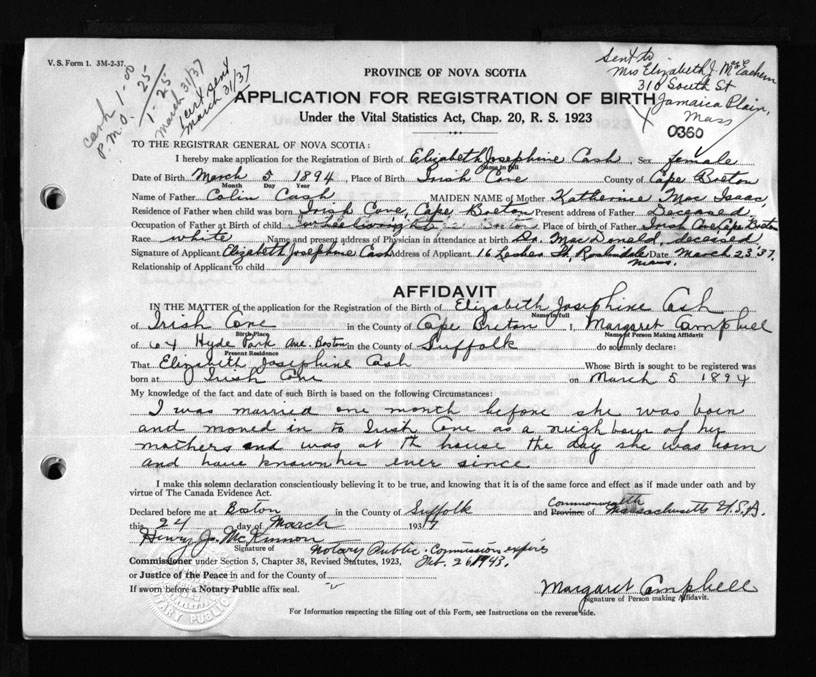 V. S. Form 1. 3M-2-37.
cash 1.00
P.M.O. .25
1.25
March 31/37
Cert sent
March 31/37
Sent to
Mrs Elizabeth J. McEachern
310 South St
Jamaica Plain,
Mass
0360
PROVINCE OF NOVA SCOTIA
APPLICATION FOR REGISTRATION OF BIRTH
Under the Vital Statistics Act, Chap. 20, R. S. 1923
TO THE REGISTRAR GENERAL OF NOVA SCOTIA:
I hereby make application for the Registration of Birth of Elizabeth Josephine Cash, Sex female
Name in full
Date of Birth March 5 1894, Place of Birth Irish Cove County of Cape Breton
Month Day Year
Name of Father Colin Cash MAIDEN NAME of Mother Katherine Mac Isaac,
Residence of Father when child was born Irish Cove, Cape Breton Present address of Father Deceased
Occupation of Father at Birth of child Place of birth of Father Irish Cove Cape Breton
Race white Name and present address of Physician in attendance at birth Dr. MacDonald, deceased,
Signature of Applicant Elizabeth Josephine Cash Address of Applicant 16 St, Roslindale Date March 23 '37.
Mass.
Relationship of Applicant to child
AFFIDAVIT
IN THE MATTER of the application for the Registration of the Birth of Elizabeth Josephine Cash
Name in full
of Irish Cove in the County of Cape Breton I, Margaret Campbell
Birth Place Name of Person Making Affidavit
of 64 Hyde Park Ave. Boston in the County of Suffolk do solemnly declare:
Present Residence
That Elizabeth Josephine Cash Whose Birth is sought to be registered was
born at Irish Cove on March 5 1894
My knowledge of the fact and date of such Birth is based on the following Circumstances:
I was married one month before she was born
and moved in to Irish Cove as a neighbour of her
mothers and was at th house the day she was born
and have known her ever since
I make this solemn declaration conscientiously believing it to be true, and knowing that it is of the same force and effect as if made under oath and by
virtue of The Canada Evidence Act.
Declared before me at Boston in the County of Suffolk and Province of Commonwealth Massachusetts U.S.A.
this 24 day of March 1937
Henry J. McKinnon
Signature of Notary Public. Commission expires
Commissioner under Section 5, Chapter 38, Revised Statutes, 1923, 26 1943.
or Justice of the Peace in and for the County of
If sworn before a Notary Public affix seal.
Margaret Campbell
Signature of Person making Affidavit.
For Information respecting the filling out of this Form, see Instructions on the reverse side.
NOTARY PUBLIC